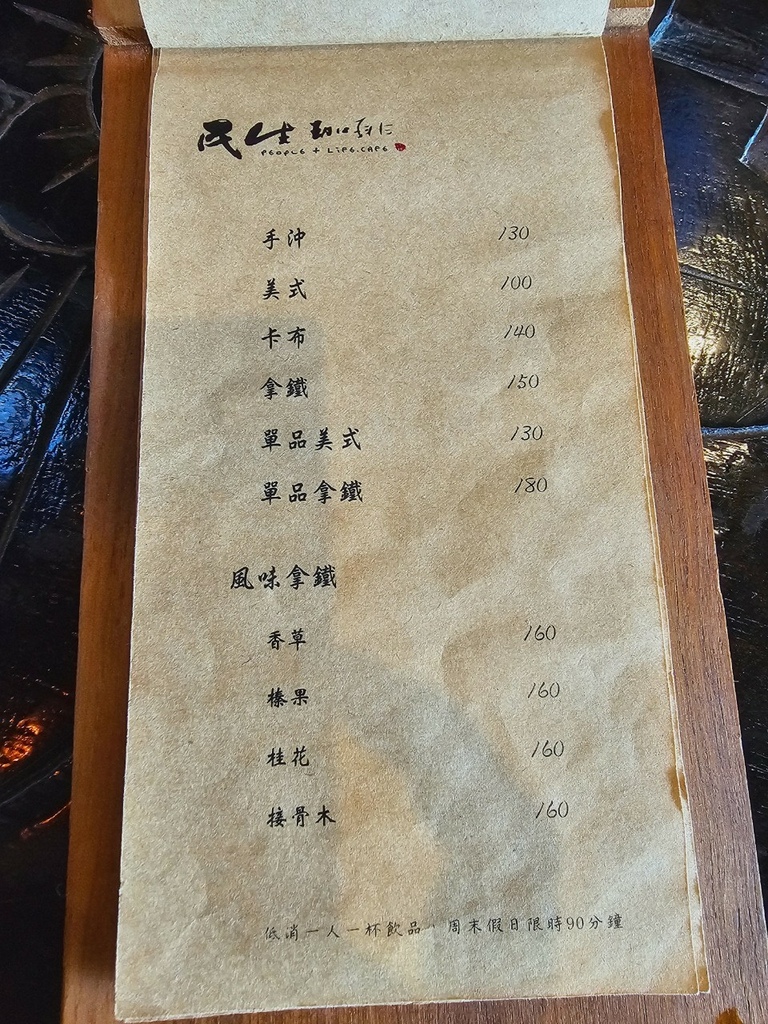 民生咖啡
PEOPLE + LIFE.CAFE
手沖 130
美式 100
卡布 140
拿鐵 150
單品美式 130
單品拿鐵 180
風味拿鐵
香草 160
榛果 160
桂花 160
接骨木 160
低消一人一杯飲品，周末假日限時90分鐘